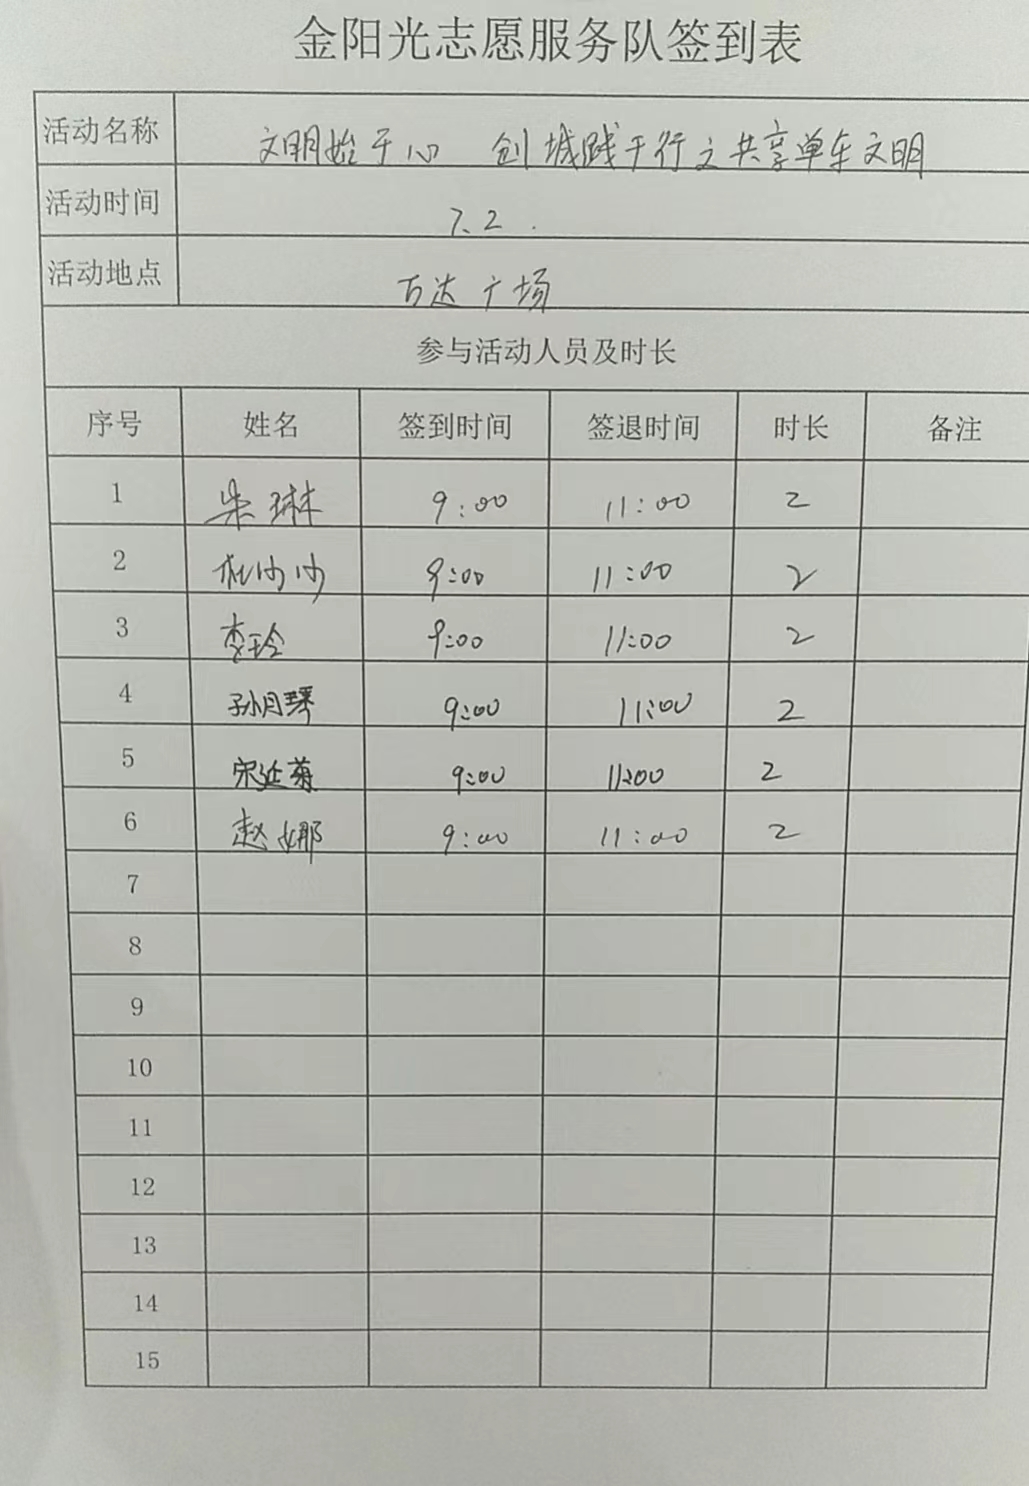 金阳光志愿服务队签到表
活动名称 文明始于心 创城践于行之共享单车文明
活动时间 7.2.
活动地点 万达广场
参与活动人员及时长
序号 姓名 签到时间 签退时间 时长 备注
1 朱琳 9:00 11:00 2
2 杜沙沙 9:00 11:00 2
3 李玲 9:00 11:00 2
4 孙月琴 9:00 11:00 2
5 宋延菊 9:00 11:00 2
6 赵娜 9:00 11:00 2
7
8
9
10
11
12
13
14
15